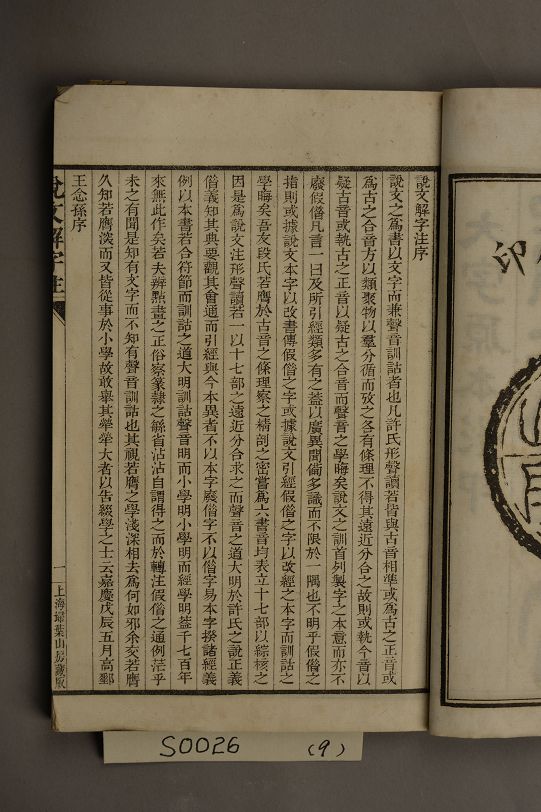 說文解字注序
說文之為書以文字而兼聲音訓詁者也凡許氏形聲讀若皆與古音相準或為古之正音或
為古之合音方以類聚物以羣分循而攷之各有條理不得其遠近分合之故則或執今音以
疑古音或執古之正音以疑古之合音而聲音之學晦矣說文之訓首列製字之本意而亦不
廢假借凡言一曰及所引經類多有之葢以廣異聞備多識而不限於一隅也不明乎假借之
指則或據說文本字以改書傳假借之字或據說文引經假借之字以改經之本字而訓詁之
學晦矣吾友段氏若膺於古音之條理察之精剖之密嘗為六書音均表立十七部以綜核之
因是為說文注形聲讀若一以十七部之遠近分合求之而聲音之道大明於許氏之說正義
借義知其典要觀其會通而引經與今本異者不以本字廢借字不以借字易本字揆諸經義
例以本書若合符節而訓詁之道大明訓詁聲音明而小學明小學明而經學明葢千七百年
來無此作矣若夫辨點畫之正俗察篆隸之繇省沾沾自謂得之而於轉注假借之通例茫乎
未之有聞是知有文字而不知有聲音訓詁也其視若膺之學淺深相去為何如邪余交若膺
久知若膺深而又皆從事於小學故敢舉其犖犖大者以告綴學之士云嘉慶戊辰五月高郵
王念孫序
說文解字注
一
上海掃葉山房藏版
印
S0026 (9)